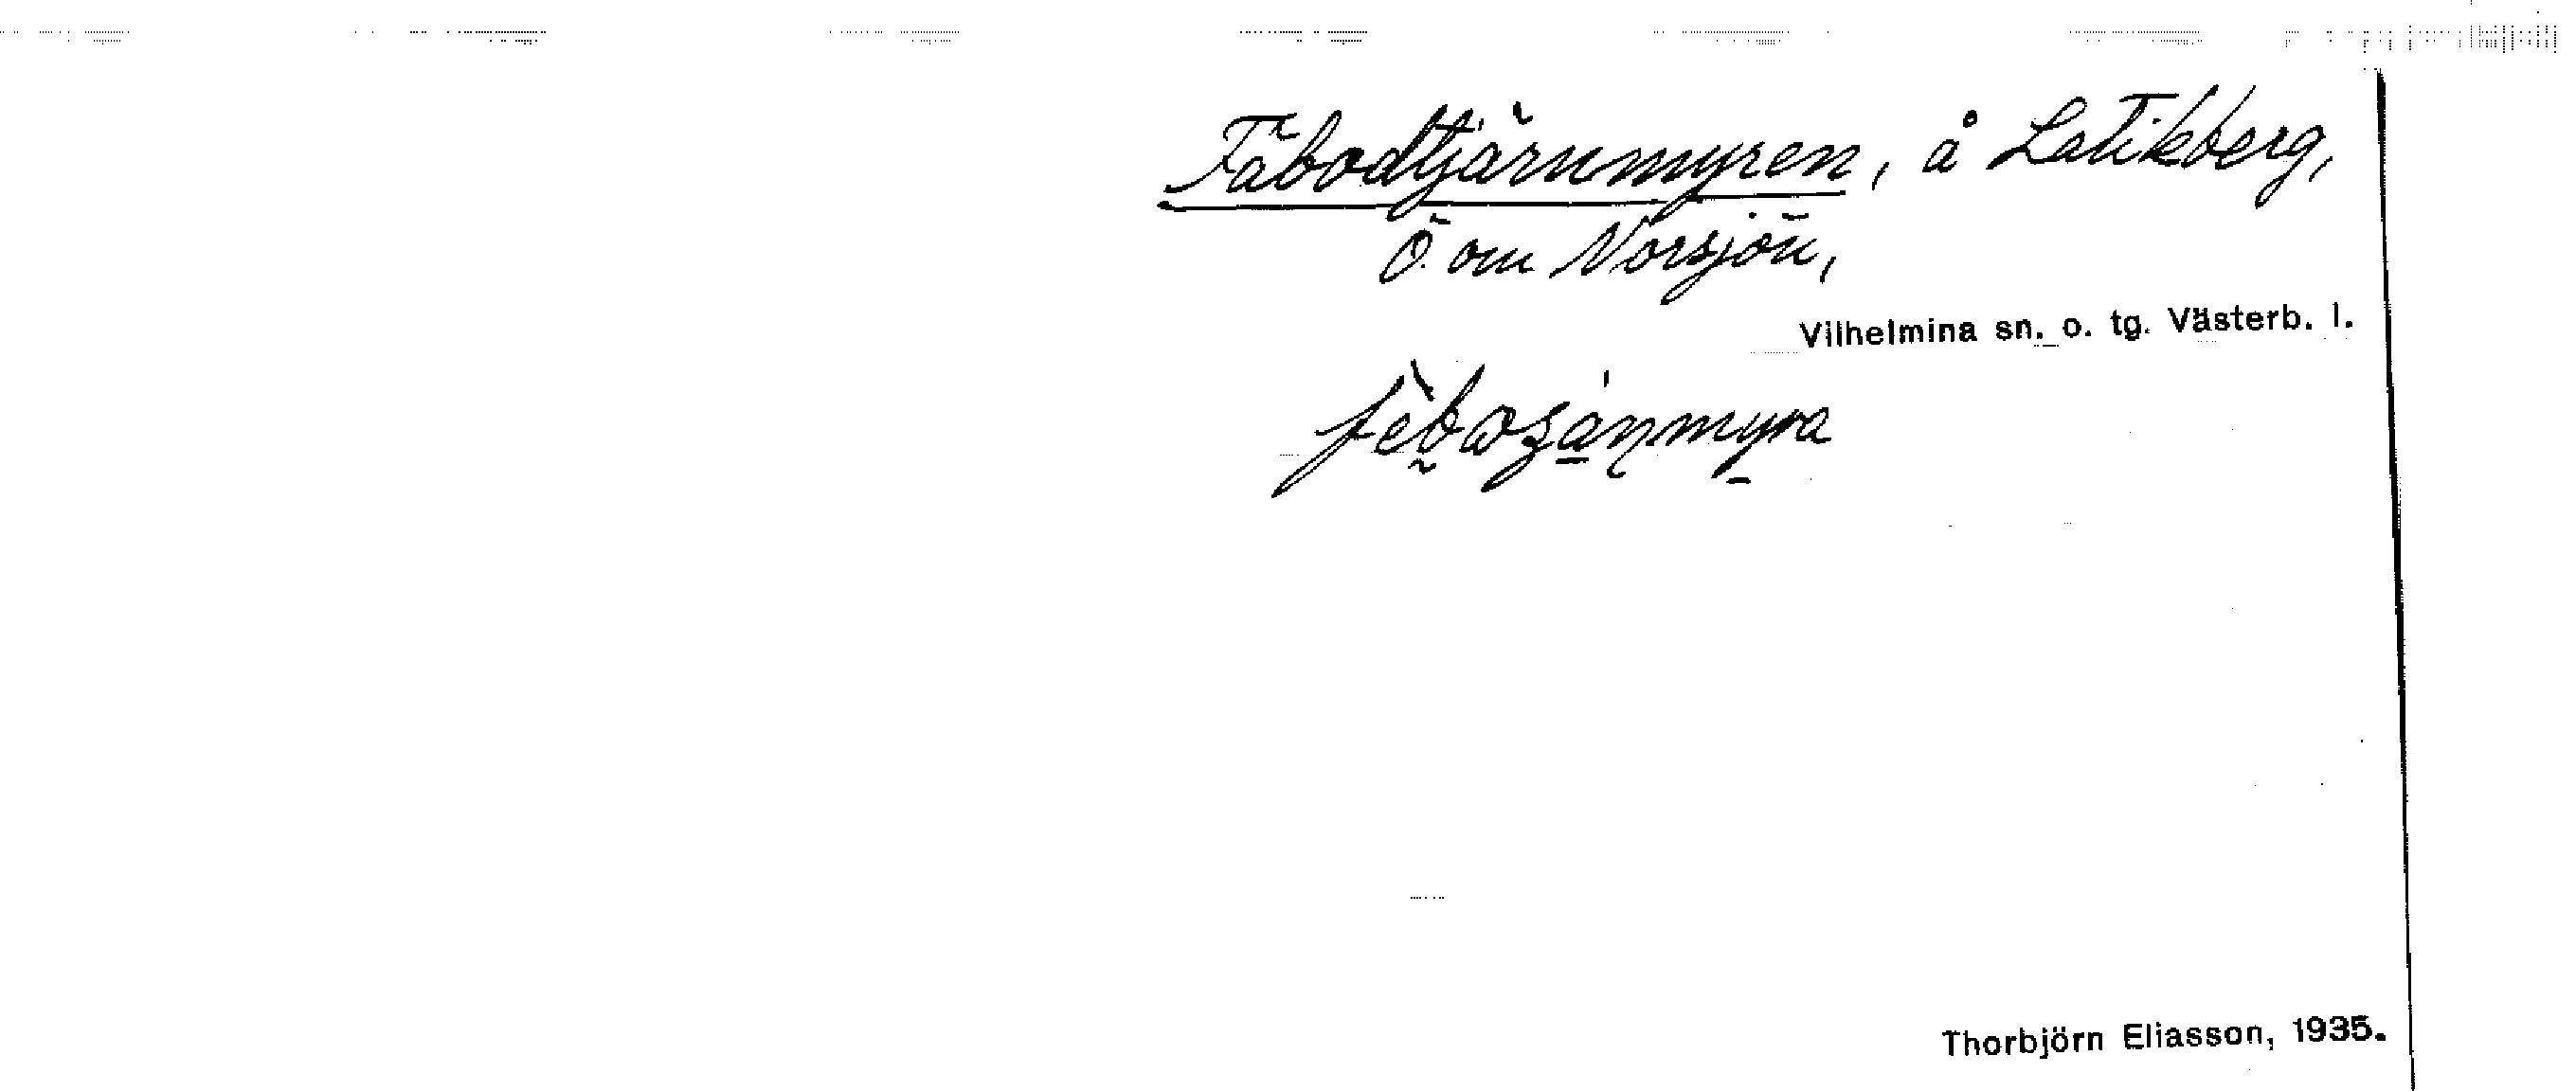 Fäbodtjärnmyren, å Latikberg,
Ö. om Norsjön,
Vilhelmina sn. o. tg. Västerb. l.
Thorbjörn Eliasson, 1935.